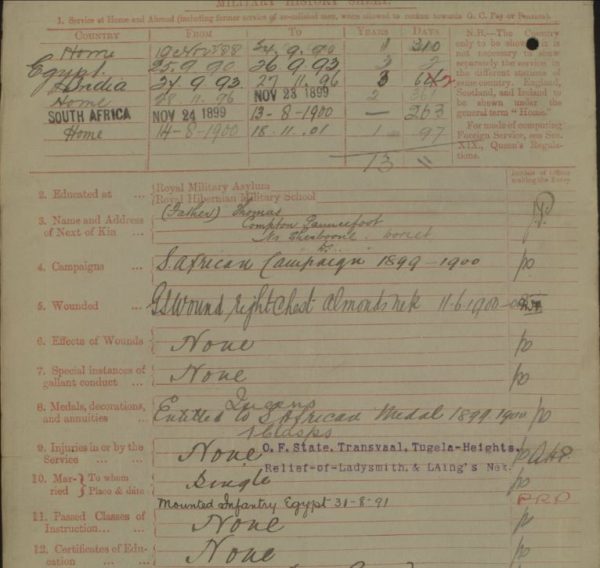 MILITARY HISTORY SHEET.
1. Service at Home and Abroad (including former service of re-enlisted men, when allowed to reckon towards G. C. Pay or Pension).
COUNTRY FROM TO YEARS DAYS
Home 19 Nov 88 24.9.90 1 310
Egypt. 25.9.90 26.9.93 3 2
India 27.9.93 27.11.96 3
Home 28.11.96 NOV 23 1899 2
SOUTH AFRICA NOV 24 1899 13-8-1900 — 263
Home 14-8-1900 18.11.01 1 97
13 "
N.B.—The Country
only to be shewn
not necessary to shew
separately the service in
the different stations of
same country. England,
Scotland, and Ireland to
be shewn under the
general term "Home."
For mode of computing
Foreign Service, see Sec.
XIX., Queen's Regula-
tions.
Initials of Officer
making the Entry
2. Educated at ... Royal Military Asylum
Royal Hibernian Military School
3. Name and Address of Next of Kin ... (Father) Thomas
Compton Gauncefoot
Nr Sherborne Dorset
4. Campaigns ... S. African Campaign 1899–1900
5. Wounded ... GS Wound right Chest Almonds Nek 11-6-1900
6. Effects of Wounds None
7. Special instances of gallant conduct ... None
8. Medals, decorations, and annuities ... Queens
Entitled to S African Medal 1899 1900
Clasps
O. F. State, Transvaal, Tugela-Heights,
Relief-of-Ladysmith, & LAing's Nek.
9. Injuries in or by the Service ... None
10. Married To whom Place & date Single
Mounted Infantry Egypt 31-8-91
11. Passed Classes of Instruction... None
12. Certificates of Edu-
cation ... None